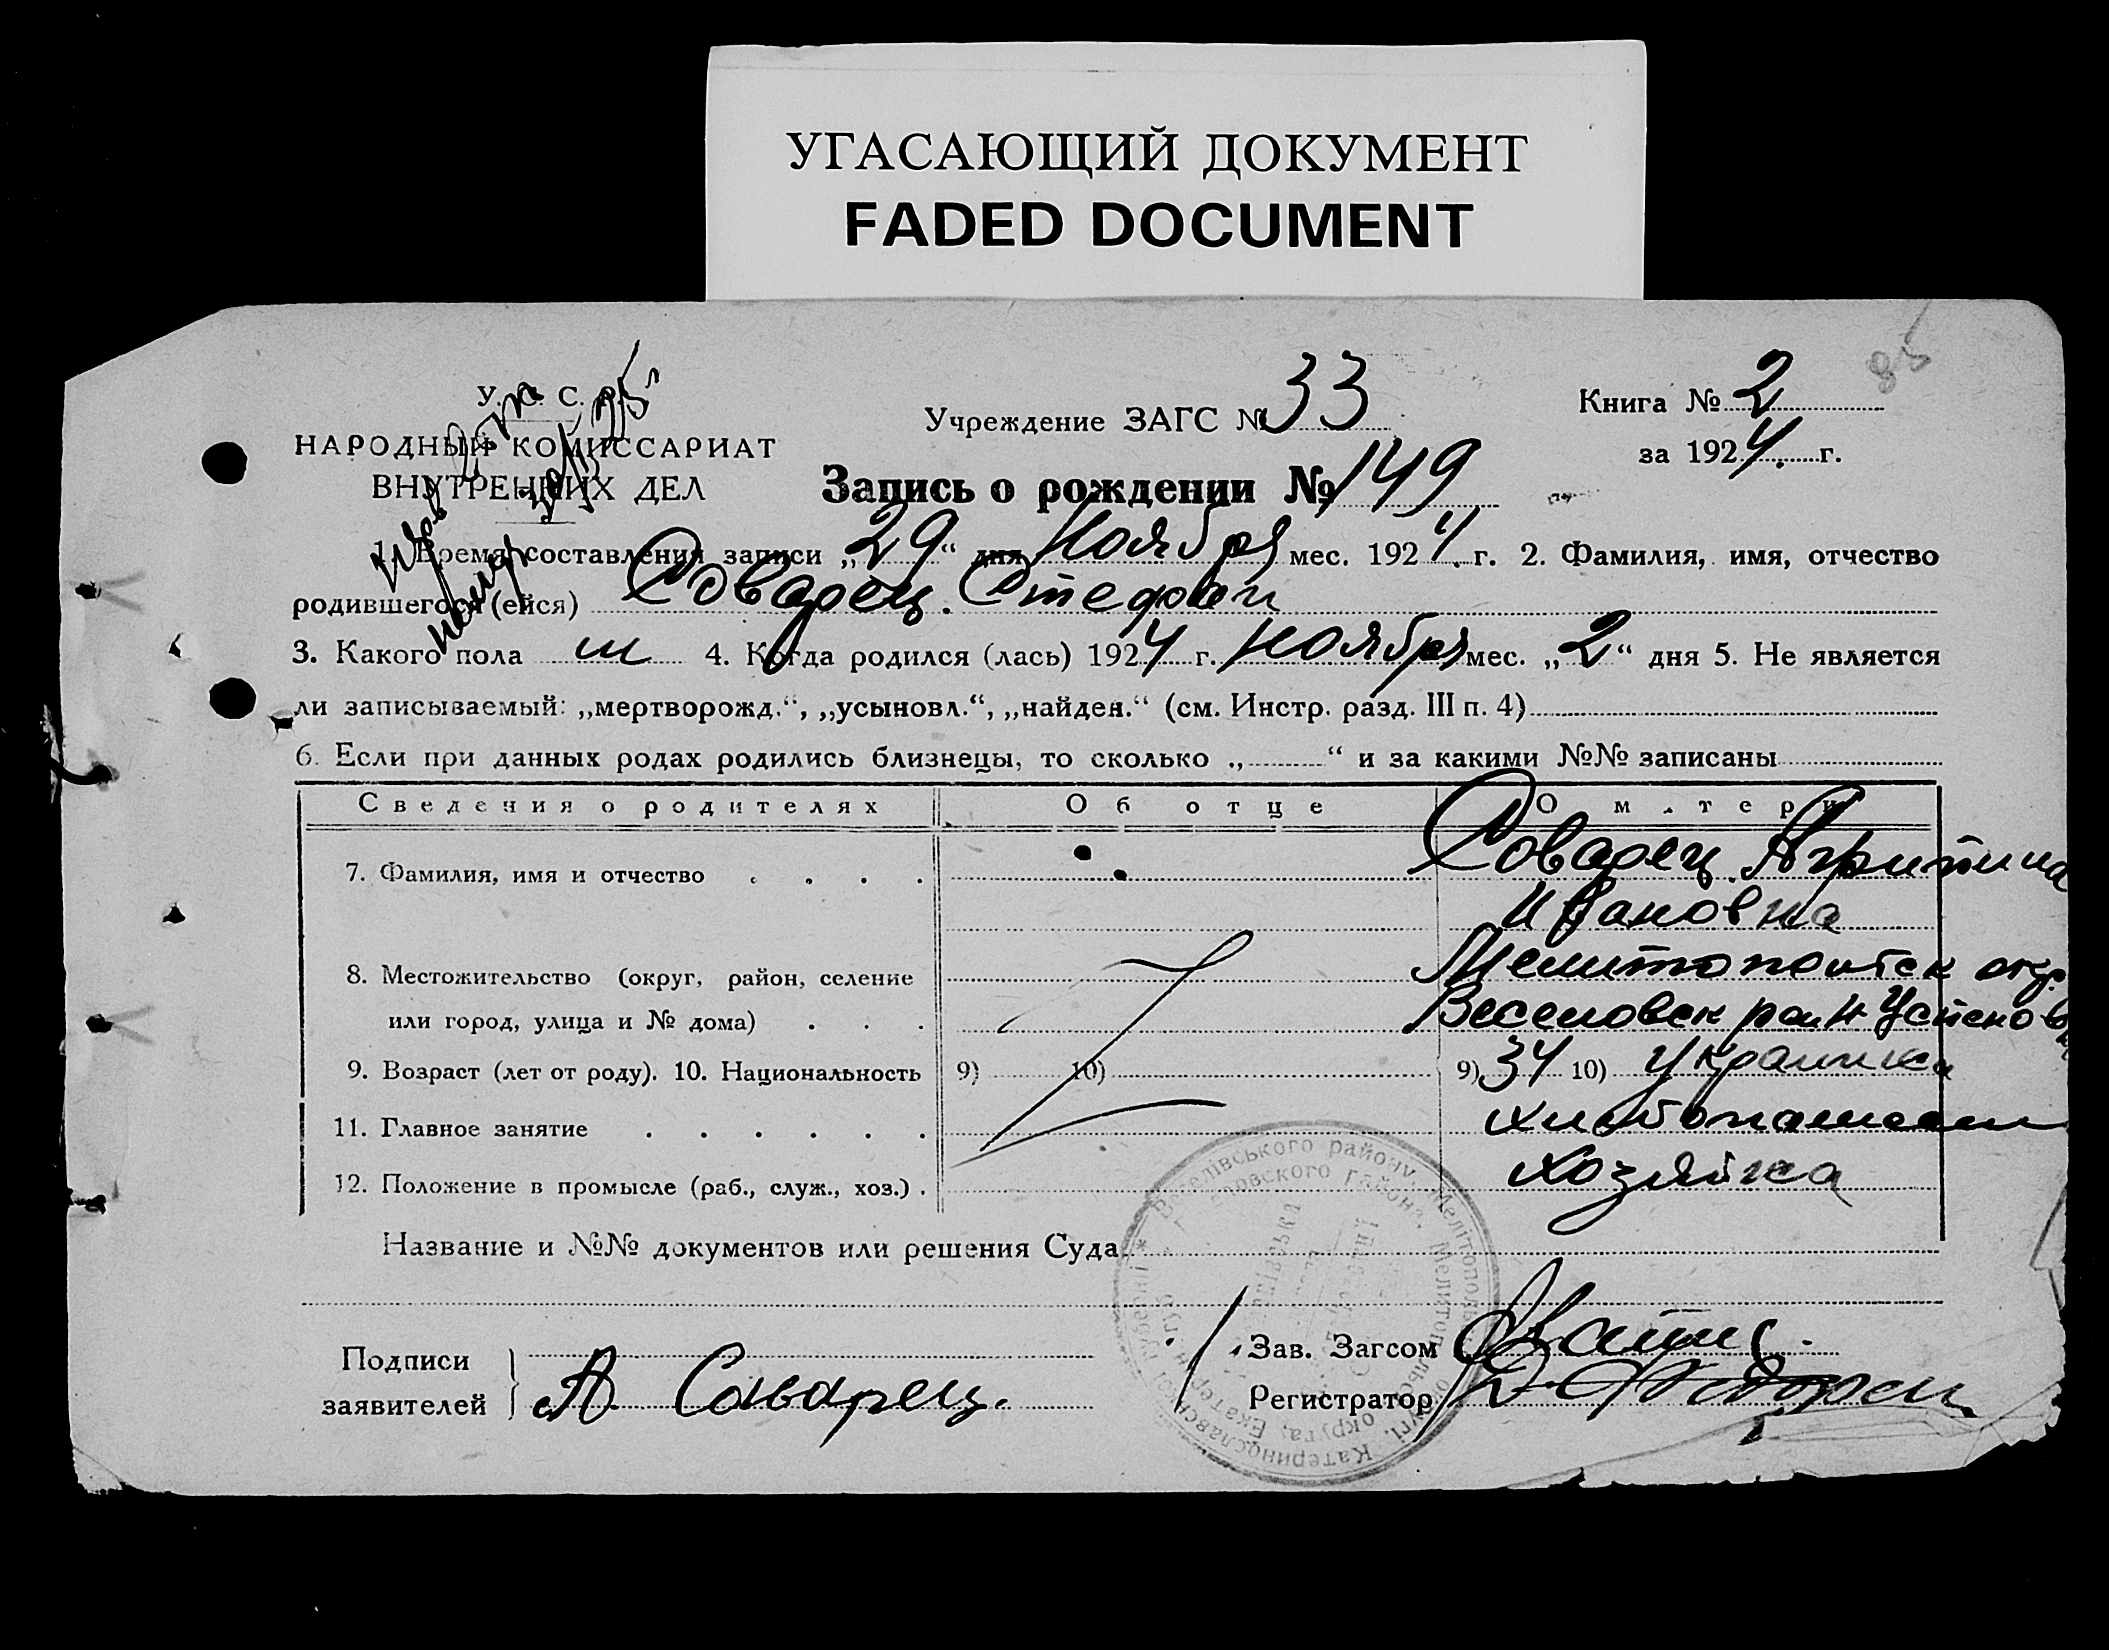 УГАСАЮЩИЙ ДОКУМЕНТ
FADED DOCUMENT
85
У. С. С. Р.
НАРОДНЫЙ КОМИССАРИАТ
ВНУТРЕННИХ ДЕЛ
Учреждение ЗАГС № 33
Книга № 2
за 1924 г.
Запись о рождении № 149
1. Время составления записи „29“ дня Ноября мес. 1924 г. 2. Фамилия, имя, отчество
родившегося (ейся) Соварец Стефан
3. Какого пола м 4. Когда родился (лась) 1924 г. Ноября мес. „2“ дня 5. Не является
ли записываемый: „мертворожд.“, „усыновл.“, „найден.“ (см. Инстр. разд. III п. 4)
6. Если при данных родах родились близнецы, то сколько „ “ и за какими №№ записаны
Сведения о родителях Об отце О матери
7. Фамилия, имя и отчество Соварец
Ивановна
8. Местожительство (округ, район, селение Мелитопольск окр.
или город, улица и № дома) Веселовск район
9. Возраст (лет от роду). 10. Национальность 9) 10) 9) 34 10) Украинка
11. Главное занятие
12. Положение в промысле (раб., служ., хоз.) Хозяйка
Название и №№ документов или решения Суда
Подписи
заявителей А Соварец.
Зав. Загсом
Регистратор